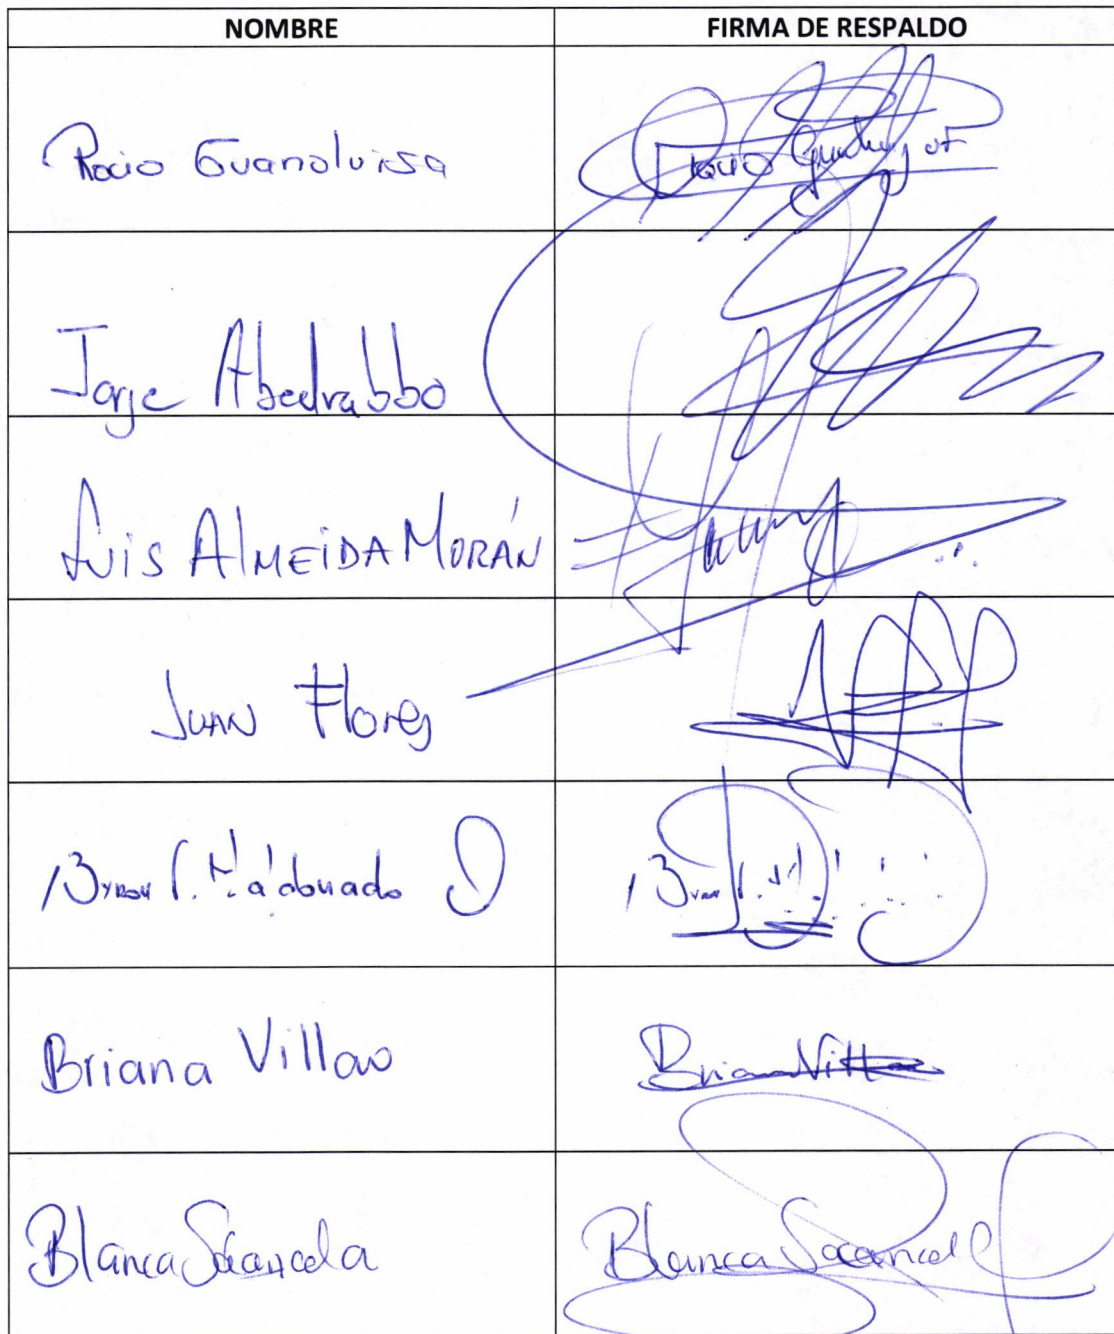 NOMBRE FIRMA DE RESPALDO
Rocio Guanoluisa Rocio
Jorge Abedrabbo
Luis ALMEIDA MORÁN
JUAN Flores
Byron Maldonado Byron
Briana Villao Briana Villao
Blanca Sacancela Blanca Sacancela